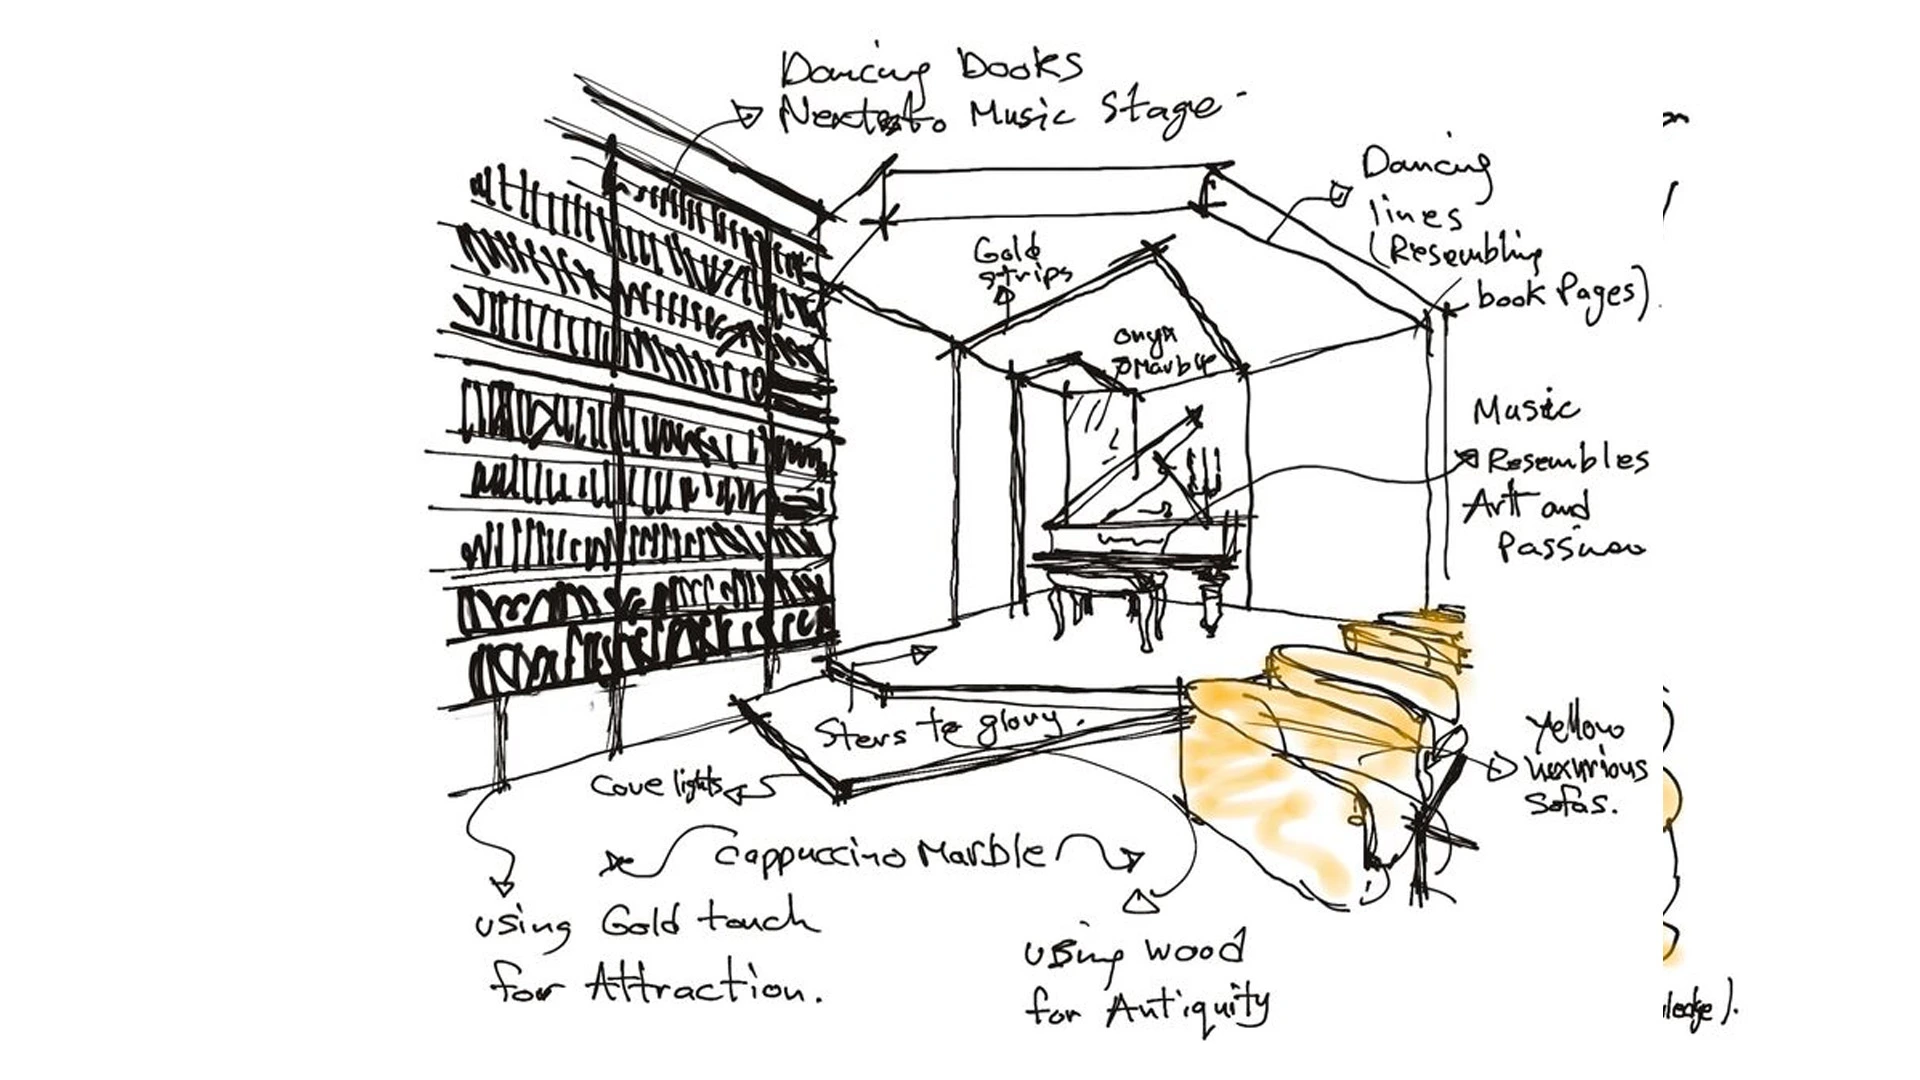 Dancing Books
Next to Music Stage
Dancing
lines
(Resembling
book Pages).
Gold
strips
onyx
Marble
Music
Resembles
Art and
Passion
Steps to glory.
Cove lights
Yellow
luxurious
Sofas.
Cappuccino Marble
using Gold touch
for Attraction.
using wood
for Antiquity
ledge).